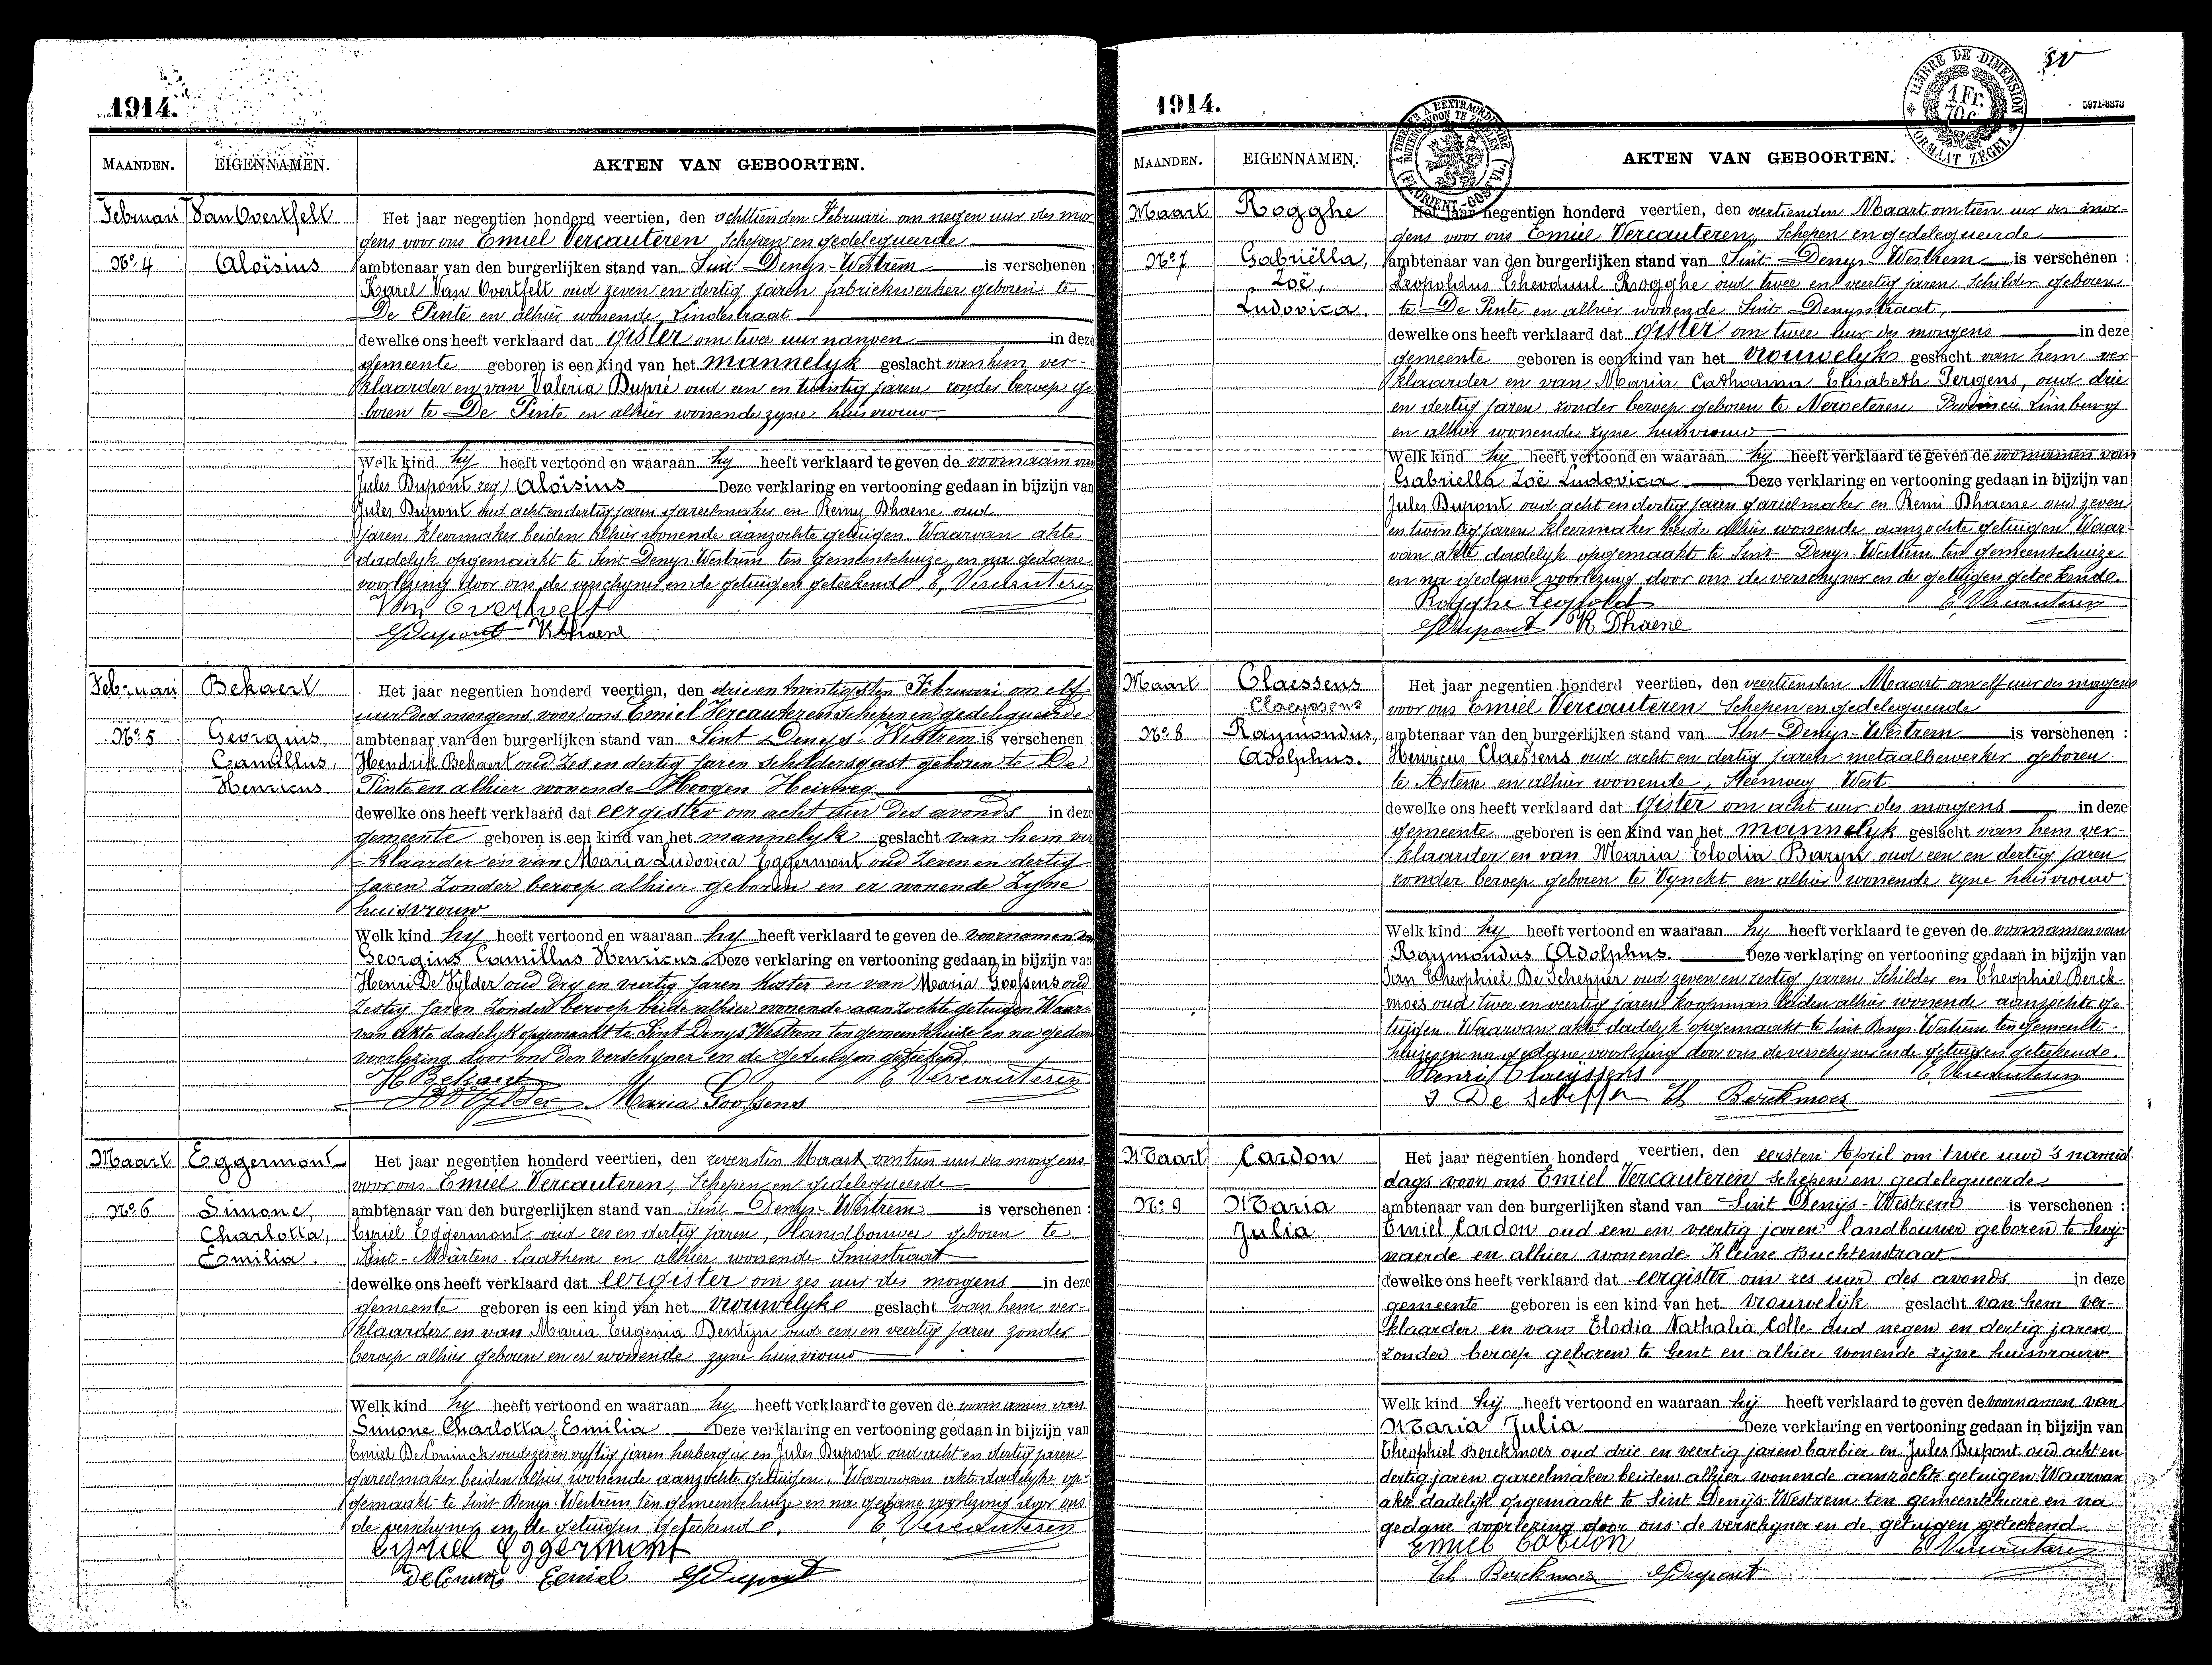 1914.
MAANDEN. EIGENNAMEN. AKTEN VAN GEBOORTEN.
Februari Van Overtfelt Het jaar negentien honderd veertien, den achttienden Februari om negen uur des mor
gens voor ons Emiel Vercauteren, Schepen en gedelegueerde
No. 4 Aloïsius ambtenaar van den burgerlijken stand van Sint Denys-Westrem is verschenen :
Karel Van Overtfelt oud zeven en dertig jaren fabriekwerker geboren te
De Pinte en alhier wonende, Lindestraat
dewelke ons heeft verklaard dat gister om twee uur nanoen in deze
gemeente geboren is een kind van het mannelyk geslacht van hem ver-
klaarder en van Valeria Dupré oud een en twintig jaren zonder beroep ge
boren te De Pinte en alhier wonende zyne huisvrouw
Welk kind hy heeft vertoond en waaraan hy heeft verklaard te geven de voornaam van
Jules Dupont zeg) Aloïsius Deze verklaring en vertooning gedaan in bijzijn van
Jules Dupont oud acht en dertig jaren gareelmaker en Remy Dhaene oud
jaren kleermaker beiden alhier wonende aanzochte getuigen. Waarvan akte
dadelyk opgemaakt te Sint Denys-Westrem ten gemeentehuize, en na gedane
voorlezing door ons, de verschyner en de getuigen geteekend. E. Vercauteren
Van Overtvelt
J Dupont R Dhaene
Februari Bekaert Het jaar negentien honderd veertien, den drie en twintigsten Februari om elf
uur des morgens voor ons Emiel Vercauteren Schepen en gedelegueerde
No. 5 Georgius, ambtenaar van den burgerlijken stand van Sint Denys-Westrem is verschenen
Camillus, Hendrik Bekaert oud zes en dertig jaren schildersgast geboren te De
Henricus. Pinte en alhier wonende Hoogen Heirweg
dewelke ons heeft verklaard dat eergister om acht uur des avonds in deze
gemeente geboren is een kind van het mannelyk geslacht van hem ver
-klaarder en van Maria Ludovica Eggermont oud zeven en dertig
jaren zonder beroep alhier geboren en er wonende zyne
huisvrouw
Welk kind hy heeft vertoond en waaraan hy heeft verklaard te geven de voornamen van
Georgius Camillus Henricus Deze verklaring en vertooning gedaan in bijzijn van
Henri De Vylder oud dry en veertig jaren Koster en van Maria Goossens oud
zestig jaren zonder beroep beide alhier wonende aanzochte getuigen Waar-
van akte dadelyk opgemaakt te Sint Denys Westrem ten gemeentehuize en na gedane
voorlezing door ons den verschyner en de getuigen geteekend.
H Bekaert E Vercauteren
De Vylder Maria Goossens
Maart Eggermont Het jaar negentien honderd veertien, den zevensten Maart om tien uur des morgens
voor ons Emiel Vercauteren, Schepen en gedelegueerde
No. 6 Simone, ambtenaar van den burgerlijken stand van Sint Denys-Westrem is verschenen :
Charlotta, Cyriel Eggermont oud zes en dertig jaren, Handbouwer geboren te
Emilia. Sint-Martens-Laathem en alhier wonende Smisstraat
dewelke ons heeft verklaard dat eergister om zes uur des morgens in deze
gemeente geboren is een kind van het vrouwelyke geslacht van hem ver-
klaarder en van Maria Eugenia Dentyn oud een en veertig jaren zonder
beroep alhier geboren en er wonende zyne huisvrouw
Welk kind hy heeft vertoond en waaraan hy heeft verklaard te geven de voornamen van
Simone Charlotta Emilia. Deze verklaring en vertooning gedaan in bijzijn van
Emiel De Coninck oud zes en vyftig jaren herbergier en Jules Dupont oud acht en dertig jaren
gareelmaker beiden alhier wonende aanzochte getuigen. Waarvan akte dadelyk op-
gemaakt te Sint-Denys-Westrem ten gemeentehuize en na gedane voorlezing door ons
de verschyner en de getuigen geteekend. E Vercauteren
Cyriel Eggermont
De Coninck Emiel J Dupont
1914.
TIMBRE DE DIMENSION
1 Fr.
70 c.
FORMAAT ZEGEL
5971-8373
MAANDEN. EIGENNAMEN. AKTEN VAN GEBOORTEN.
Maart Rogghe Het jaar negentien honderd veertien, den veertienden Maart om tien uur des mor-
gens voor ons Emiel Vercauteren, Schepen en gedelegueerde
No. 7 Gabriëlla, ambtenaar van den burgerlijken stand van Sint Denys-Westhem is verschenen :
Zoë, Leopoldus Theoduul Rogghe oud twee en veertig jaren Schilder geboren
Ludovica. te De Pinte en alhier wonende Sint Denysstraat,
dewelke ons heeft verklaard dat gister om twee uur des morgens in deze
gemeente geboren is een kind van het vrouwelyke geslacht van hem ver-
klaarder en van Maria Catharina Elisabeth Jergens, oud drie
en dertig jaren zonder beroep geboren te Neroeteren Provincie Limburg
en alhier wonende zyne huisvrouw
Welk kind hy heeft vertoond en waaraan hy heeft verklaard te geven de voornamen van
Gabriella Zoë Ludovica. Deze verklaring en vertooning gedaan in bijzijn van
Jules Dupont oud acht en dertig jaren gareelmaker en Remi Dhaene oud zeven
en twintig jaren kleermaker beide alhier wonende aanzochte getuigen. Waar-
van akte dadelyk opgemaakt te Sint-Denys-Westrem ten gemeentehuize
en na gedane voorlezing door ons de verschyner en de getuigen geteekend.
Rogghe Leopold E. Vercauteren
J Dupont R Dhaene
Maart Claessens Het jaar negentien honderd veertien, den veertienden Maart om elf uur des morgens
Claeyssens voor ons Emiel Vercauteren Schepen en gedelegueerde
No. 8 Raymondus, ambtenaar van den burgerlijken stand van Sint Denys-Westrem is verschenen :
Adolphus. Henricus Claessens oud acht en dertig jaren metaalbewerker geboren
te Astene en alhier wonende, Steenweg West
dewelke ons heeft verklaard dat gister om acht uur des morgens in deze
gemeente geboren is een kind van het mannelyk geslacht van hem ver-
klaarder en van Maria Elodia Baryn oud een en dertig jaren
zonder beroep geboren te Vynckt en alhier wonende zyne huisvrouw
Welk kind hy heeft vertoond en waaraan hy heeft verklaard te geven de voornamen van
Raymondus Adolphus. Deze verklaring en vertooning gedaan in bijzijn van
Jan Theophiel De Schepper oud zeven en zestig jaren Schilder en Theophiel Berck-
moes oud twee en veertig jaren koopman beiden alhier wonende aanzochte ge
tuigen. Waarvan akte dadelyk opgemaakt te Sint Denys-Westrem ten gemeente-
huize en na gedane voorlezing door ons de verschyner en de getuigen geteekend.
Henri Claeyssens E. Vercauteren
J De Schepper Th Berckmoes
Maart Cardon Het jaar negentien honderd veertien, den eersten April om twee uur 's namid
dags voor ons Emiel Vercauteren Schepen en gedelegueerde
No. 9 Maria ambtenaar van den burgerlijken stand van Sint Denijs-Westrem is verschenen :
Julia Emiel Cardon oud een en veertig jaren landbouwer geboren te Zwij-
naerde en alhier wonende Kleine Buchtenstraat
dewelke ons heeft verklaard dat eergister om zes uur des avonds in deze
gemeente geboren is een kind van het vrouwelijk geslacht van hem ver-
klaarder en van Elodia Nathalia Colle oud negen en dertig jaren
zonder beroep geboren te Gent en alhier wonende zijne huisvrouw
Welk kind hij heeft vertoond en waaraan hij heeft verklaard te geven de voornamen van
Maria Julia Deze verklaring en vertooning gedaan in bijzijn van
Theophiel Berckmoes oud drie en veertig jaren barbier en Jules Dupont oud acht en
dertig jaren gareelmaker beiden alhier wonende aanzochte getuigen Waarvan
akte dadelijk opgemaakt te Sint Denijs-Westrem ten gemeentehuize en na
gedane voorlezing door ons de verschyner en de getuigen geteekend
Emiel Cardon E Vercauteren
Th Berckmoes J Dupont